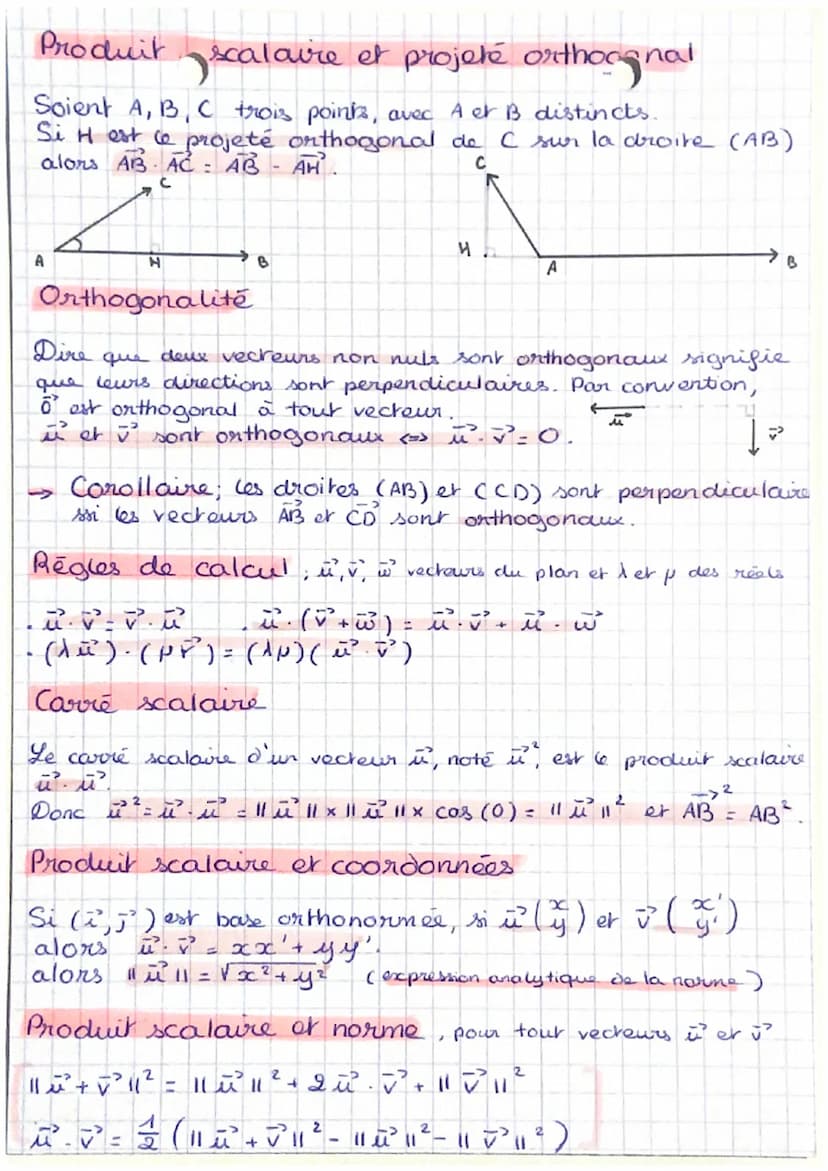 Produit scalaire et projeté orthogonal
Soient A, B, C trois points, avec A et B distincts.
Si H est le projeté orthogonal de C sur la droite (AB)
alors AB⃗ . AC⃗ = AB⃗ - AH⃗.
C
A H B
C
H A B
Orthogonalité
Dire que deux vecteurs non nuls sont orthogonaux signifie
que leurs directions sont perpendiculaires. Par convention,
0⃗ est orthogonal à tout vecteur.
u⃗ et v⃗ sont orthogonaux <=> u⃗ . v⃗ = 0.
u⃗ v⃗
→ Corollaire; les droites (AB) et (CD) sont perpendiculaire
ssi les vecteurs AB⃗ et CD⃗ sont orthogonaux.
Règles de calcul ; u⃗, v⃗, w⃗ vecteurs du plan et λ et μ des réels
. u⃗ . v⃗ = v⃗ . u⃗ . u⃗ . (v⃗ + w⃗) = u⃗ . v⃗ + u⃗ . w⃗
. (λu⃗) . (μv⃗) = (λμ)(u⃗ . v⃗)
Carré scalaire
Le carré scalaire d'un vecteur u⃗, noté u⃗², est le produit scalaire
u⃗ . u⃗.
Donc u⃗² = u⃗ . u⃗ = ||u⃗|| × ||u⃗|| × cos (0) = ||u⃗||² et AB⃗² = AB².
Produit scalaire et coordonnées
Si (i⃗, j⃗) est base orthonormée, si u⃗ (x y) et v⃗ (x' y')
alors u⃗ . v⃗ = xx' + yy'.
alors ||u⃗|| = √x² + y² (expression analytique de la norme)
Produit scalaire et norme, pour tout vecteurs u⃗ et v⃗
||u⃗ + v⃗||² = ||u⃗||² + 2u⃗ . v⃗ + ||v⃗||²
u⃗ . v⃗ = 1/2 (||u⃗ + v⃗||² - ||u⃗||² - ||v⃗||²)